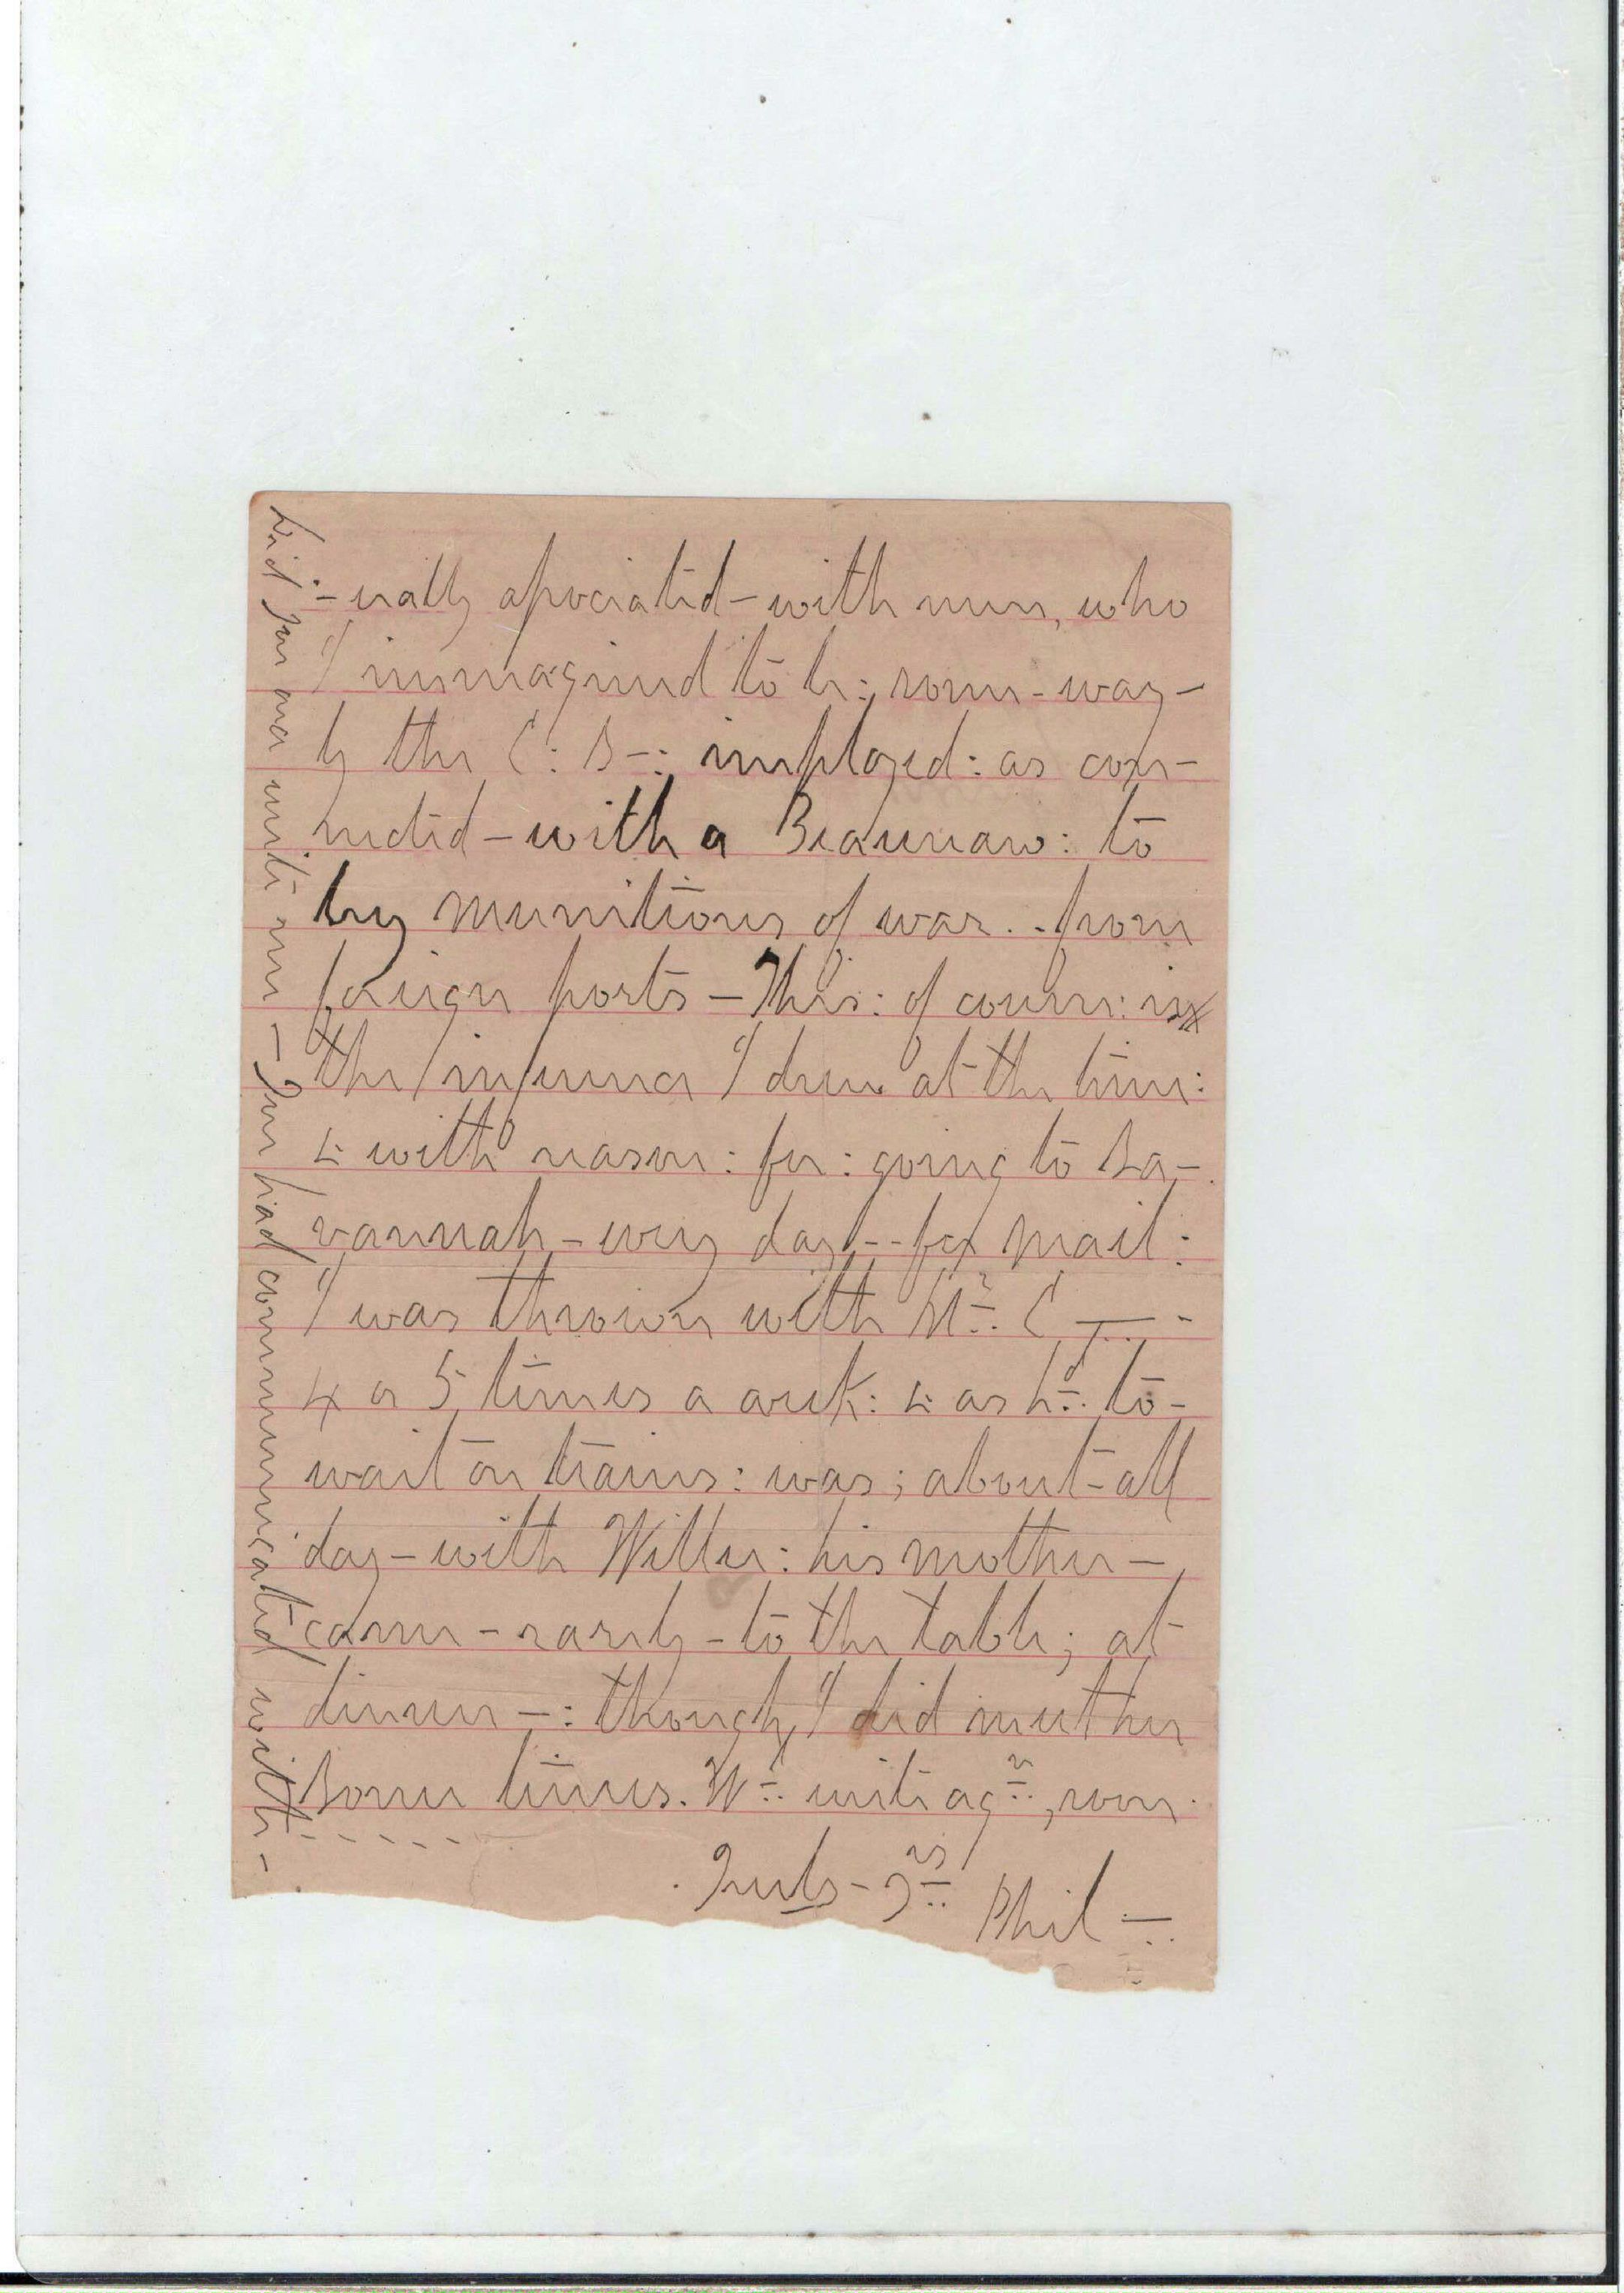 -ually associated - with men, who
I immagined to be: some - way -
by the C: S -: imployed: as con-
nected - with a Beaureaw: to
buy munitions of war .. from
foreign ports - This: of course: is
the inference I drew at the time:
& with reason: for: going to Sa-
vannah - every day -- for mail:
I was thrown with Mr. C
4 or 5 times a week: & as hd. to -
wait on trains: was; about - all
day - with Willie: his mother -
came - rarely - to the table; at
dinner -: though, I did meet her
Some times. W-: write agn., soon.
July - 3rd
Phil -
did you ever write me - You had communicated with -